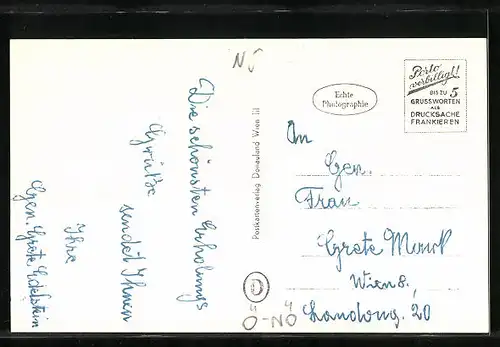 NS
Die schönsten Erholungs
Grüße
sendet Ihnen
Ihre
Gen. Grete Edelstein
Postkartenverlag Donauland Wien III
D
Ö-NÖ
Echte
Photographie
Porto
verbilligt!
BIS ZU 5
GRUSSWORTEN
ALS
DRUCKSACHE
FRANKIEREN
An
Gen.
Frau
Grete
Wien 8.,
20